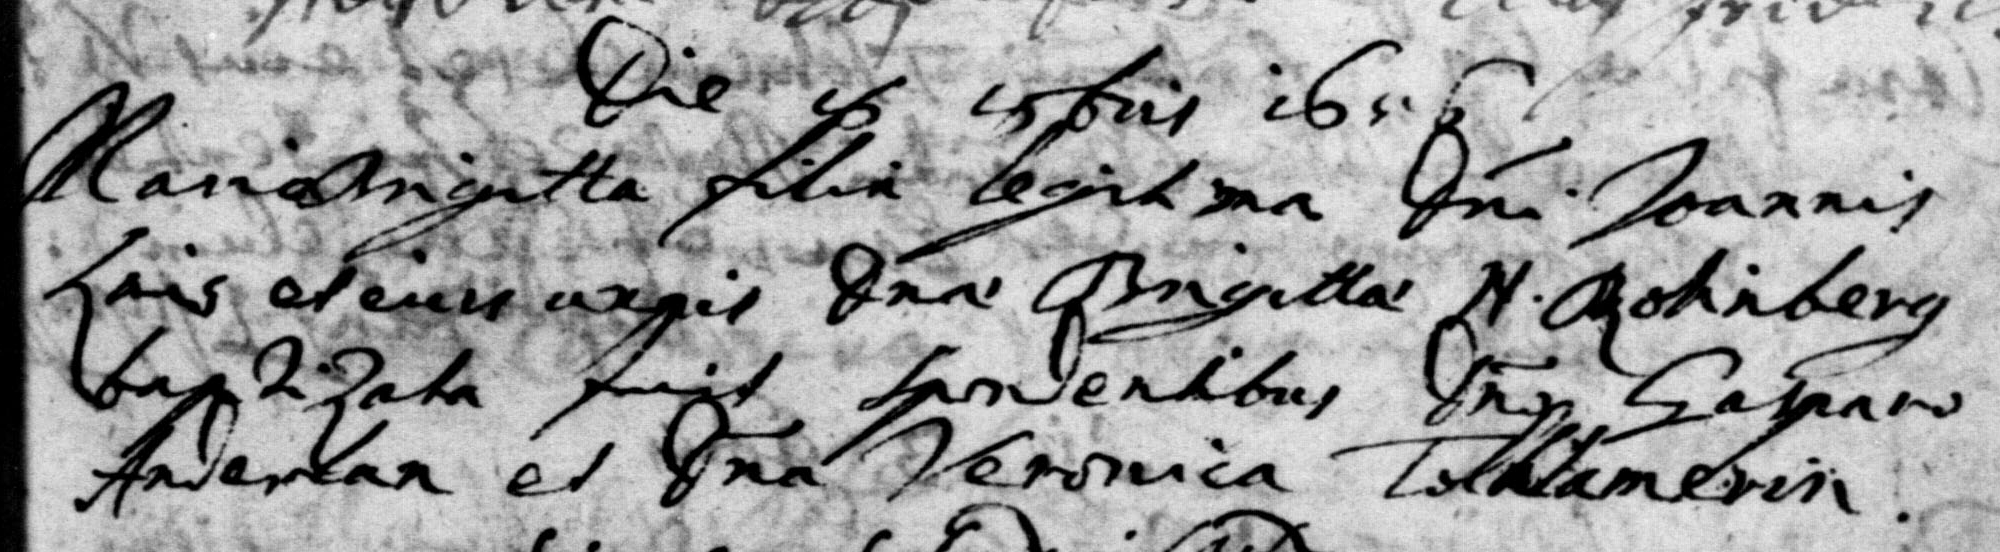 Die 15 15bris 1655
Maria Brigitta filia legitima Dni Joannis
Luis et eius uxoris Dnae Brigittae N. Rohnberg
baptizata fuit spondentibus Dno Casparo
Anderlan et Dna Veronica